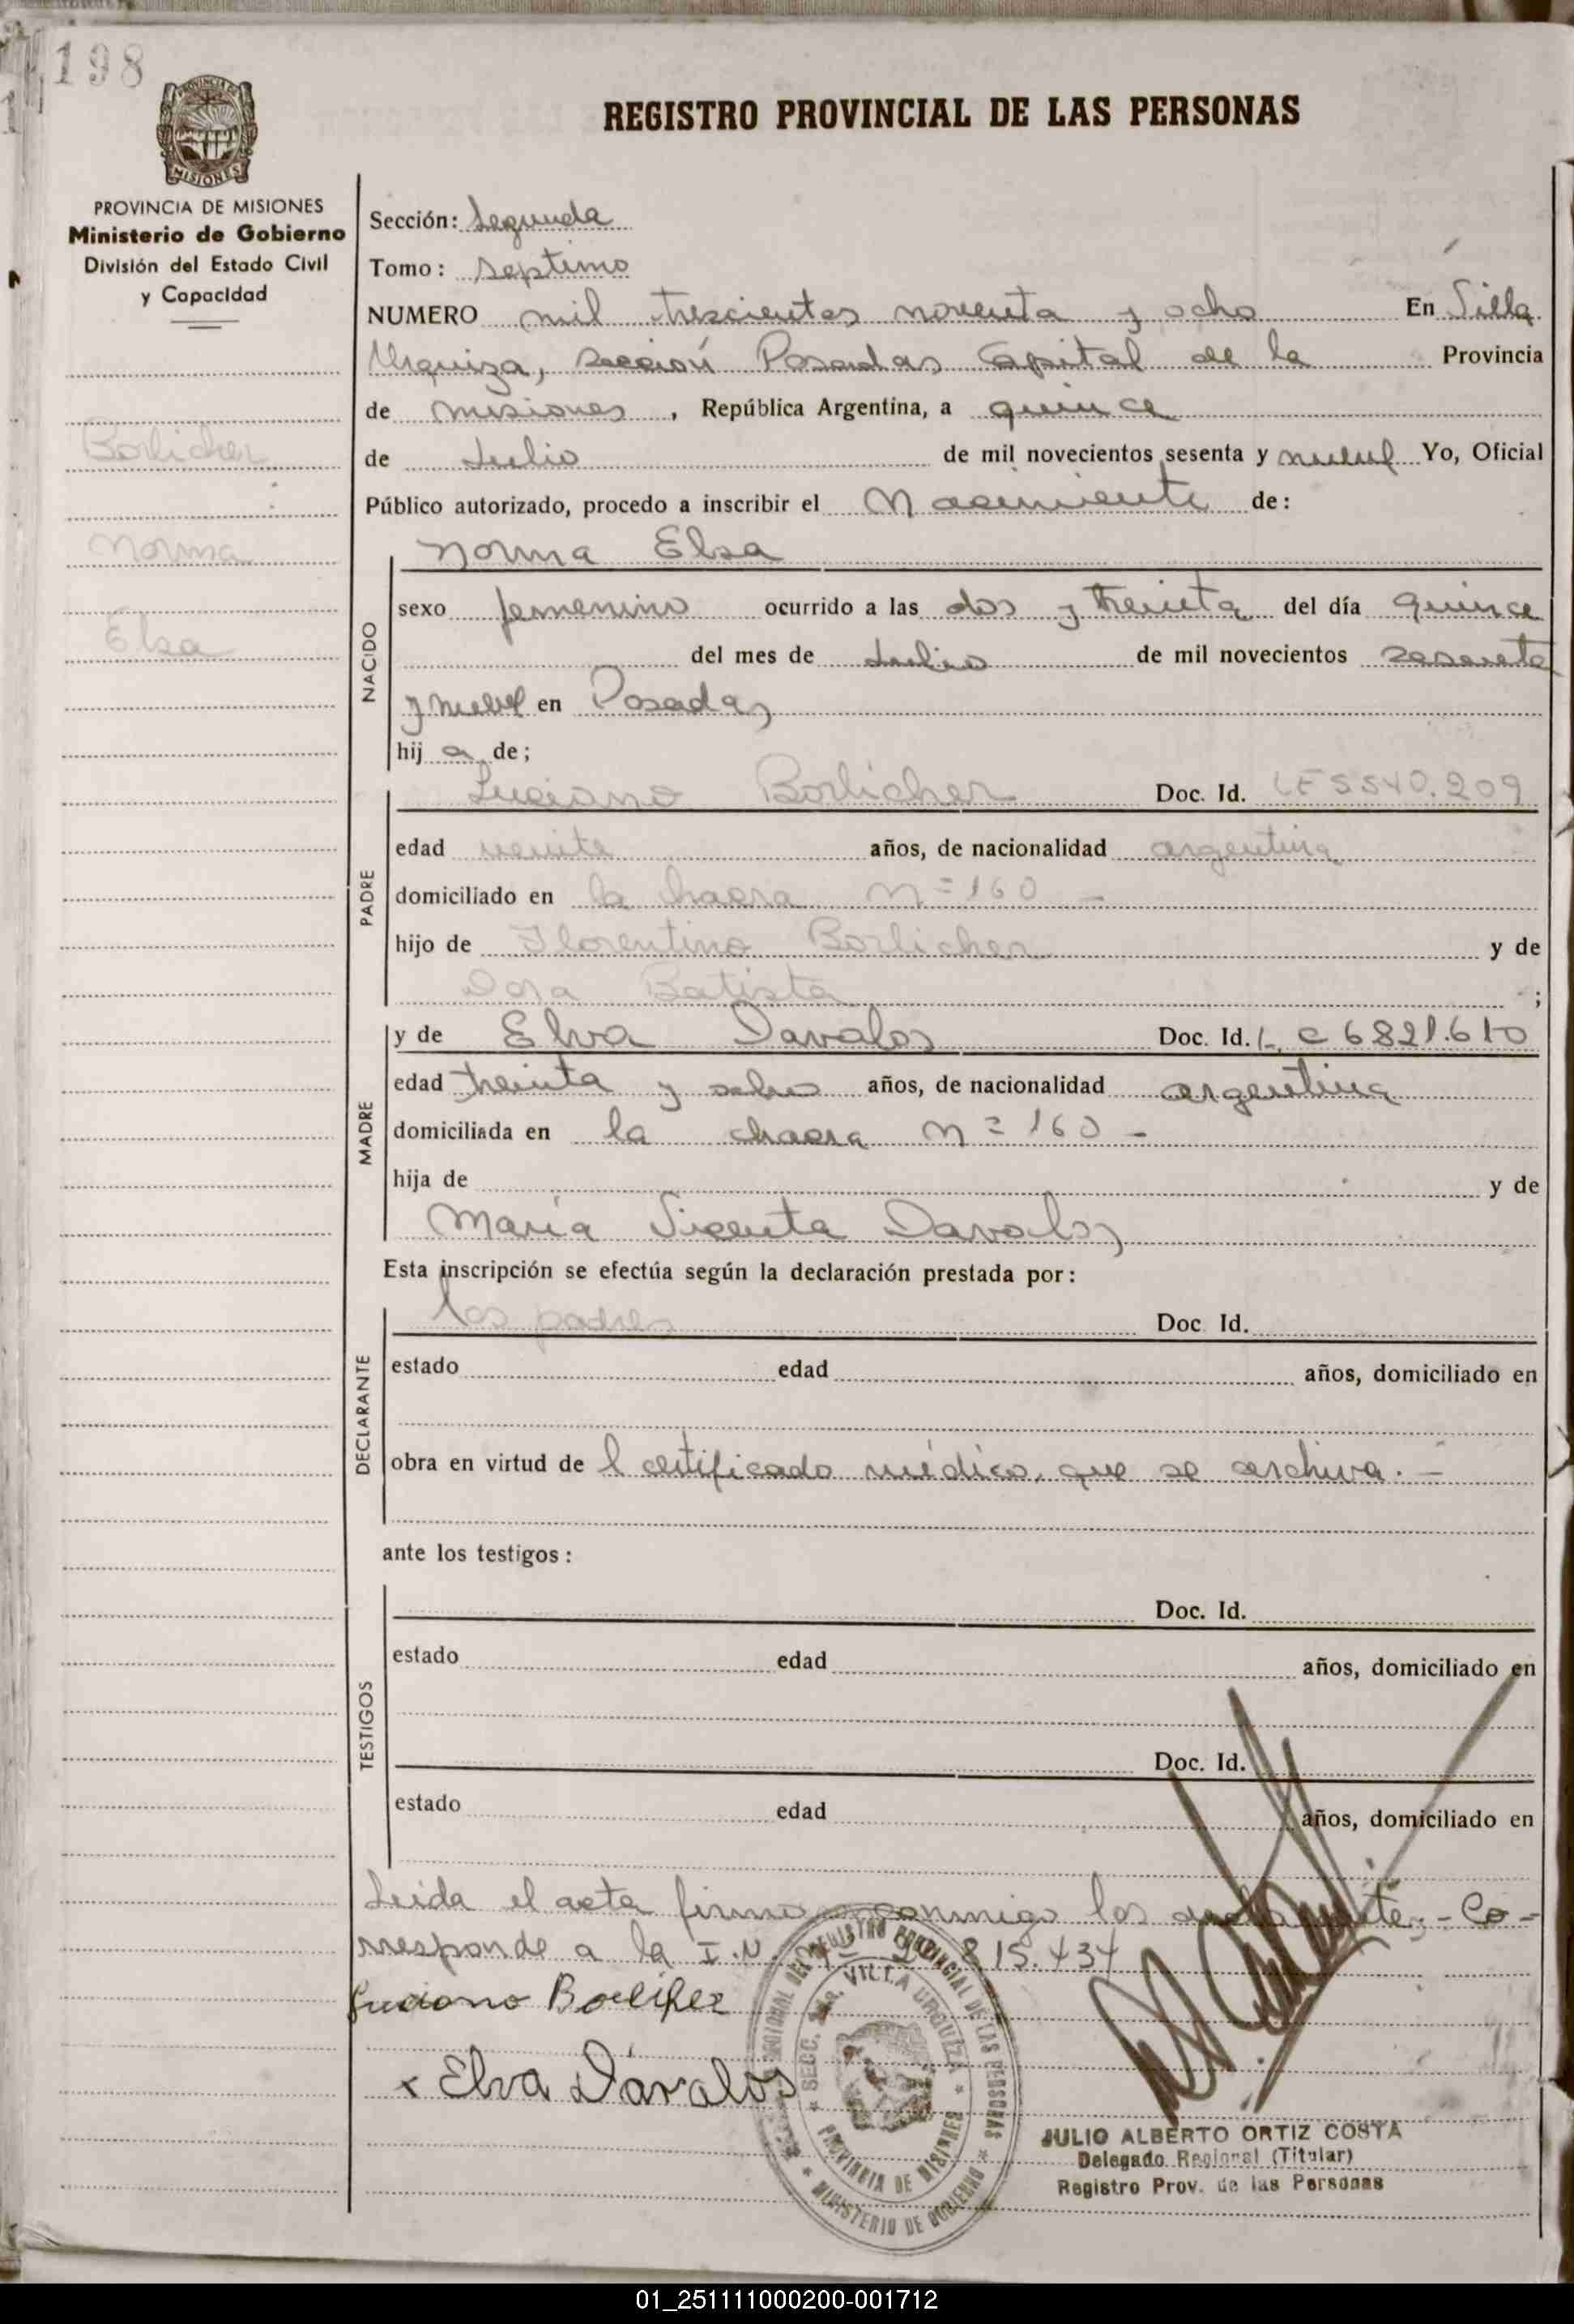 198
REGISTRO PROVINCIAL DE LAS PERSONAS
MISIONES
PROVINCIA DE MISIONES
Ministerio de Gobierno
División del Estado Civil
y Capacidad
Borlicher
Norma
Elsa
Sección: Segunda
Tomo: septimo
NUMERO mil trescientos noventa y ocho En Villa
Urquiza, sección Posadas Capital de la Provincia
de Misiones, República Argentina, a quince
de Julio de mil novecientos sesenta y nueve Yo, Oficial
Público autorizado, procedo a inscribir el Nacimiento de:
NACIDO
Norma Elsa
sexo femenino ocurrido a las dos y treinta del día quince
del mes de Julio de mil novecientos sesenta
y nueve en Posadas
hij a de;
PADRE
Luciano Borlicher Doc. Id. LE 5540.209
edad veinte años, de nacionalidad argentina
domiciliado en la chacra N=160 -
hijo de Florentino Borlicher y de
Dora Batista ;
MADRE
y de Elva Davalos Doc. Id. L C 6821.610
edad treinta y ocho años, de nacionalidad argentina
domiciliada en la chacra N=160 -
hija de y de
María Vicenta Davalos
Esta inscripción se efectúa según la declaración prestada por:
DECLARANTE
los padres Doc. Id.
estado edad años, domiciliado en
obra en virtud de l certificado médico, que se archiva. -
ante los testigos:
TESTIGOS
Doc. Id.
estado edad años, domiciliado en
Doc. Id.
estado edad años, domiciliado en
Leida el acta firma conmigo los - Co-
rresponde a la I.N. 815.434
Luciano Borlicher
x Elva Dávalos
REGISTRO PROVINCIAL DE LAS PERSONAS
SECC. 2da. VILLA URQUIZA
PROVINCIA DE MISIONES
MINISTERIO DE GOBIERNO
JULIO ALBERTO ORTIZ COSTA
Delegado Regional (Titular)
Registro Prov. de las Personas
01_251111000200-001712